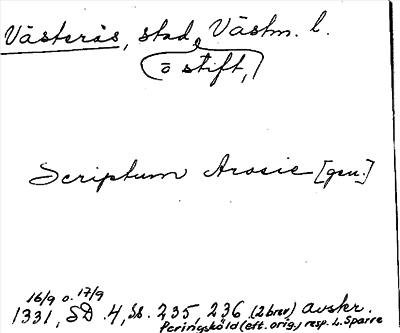 Västerås, stad, Västm. l.
o stift,
Scriptum Arosie [gen.]
16/9 o. 17/9
1331, SD .4, s. 235, 236 (2 brev) avskr.
Peringsköld (eft. orig.) resp. L. Sparre